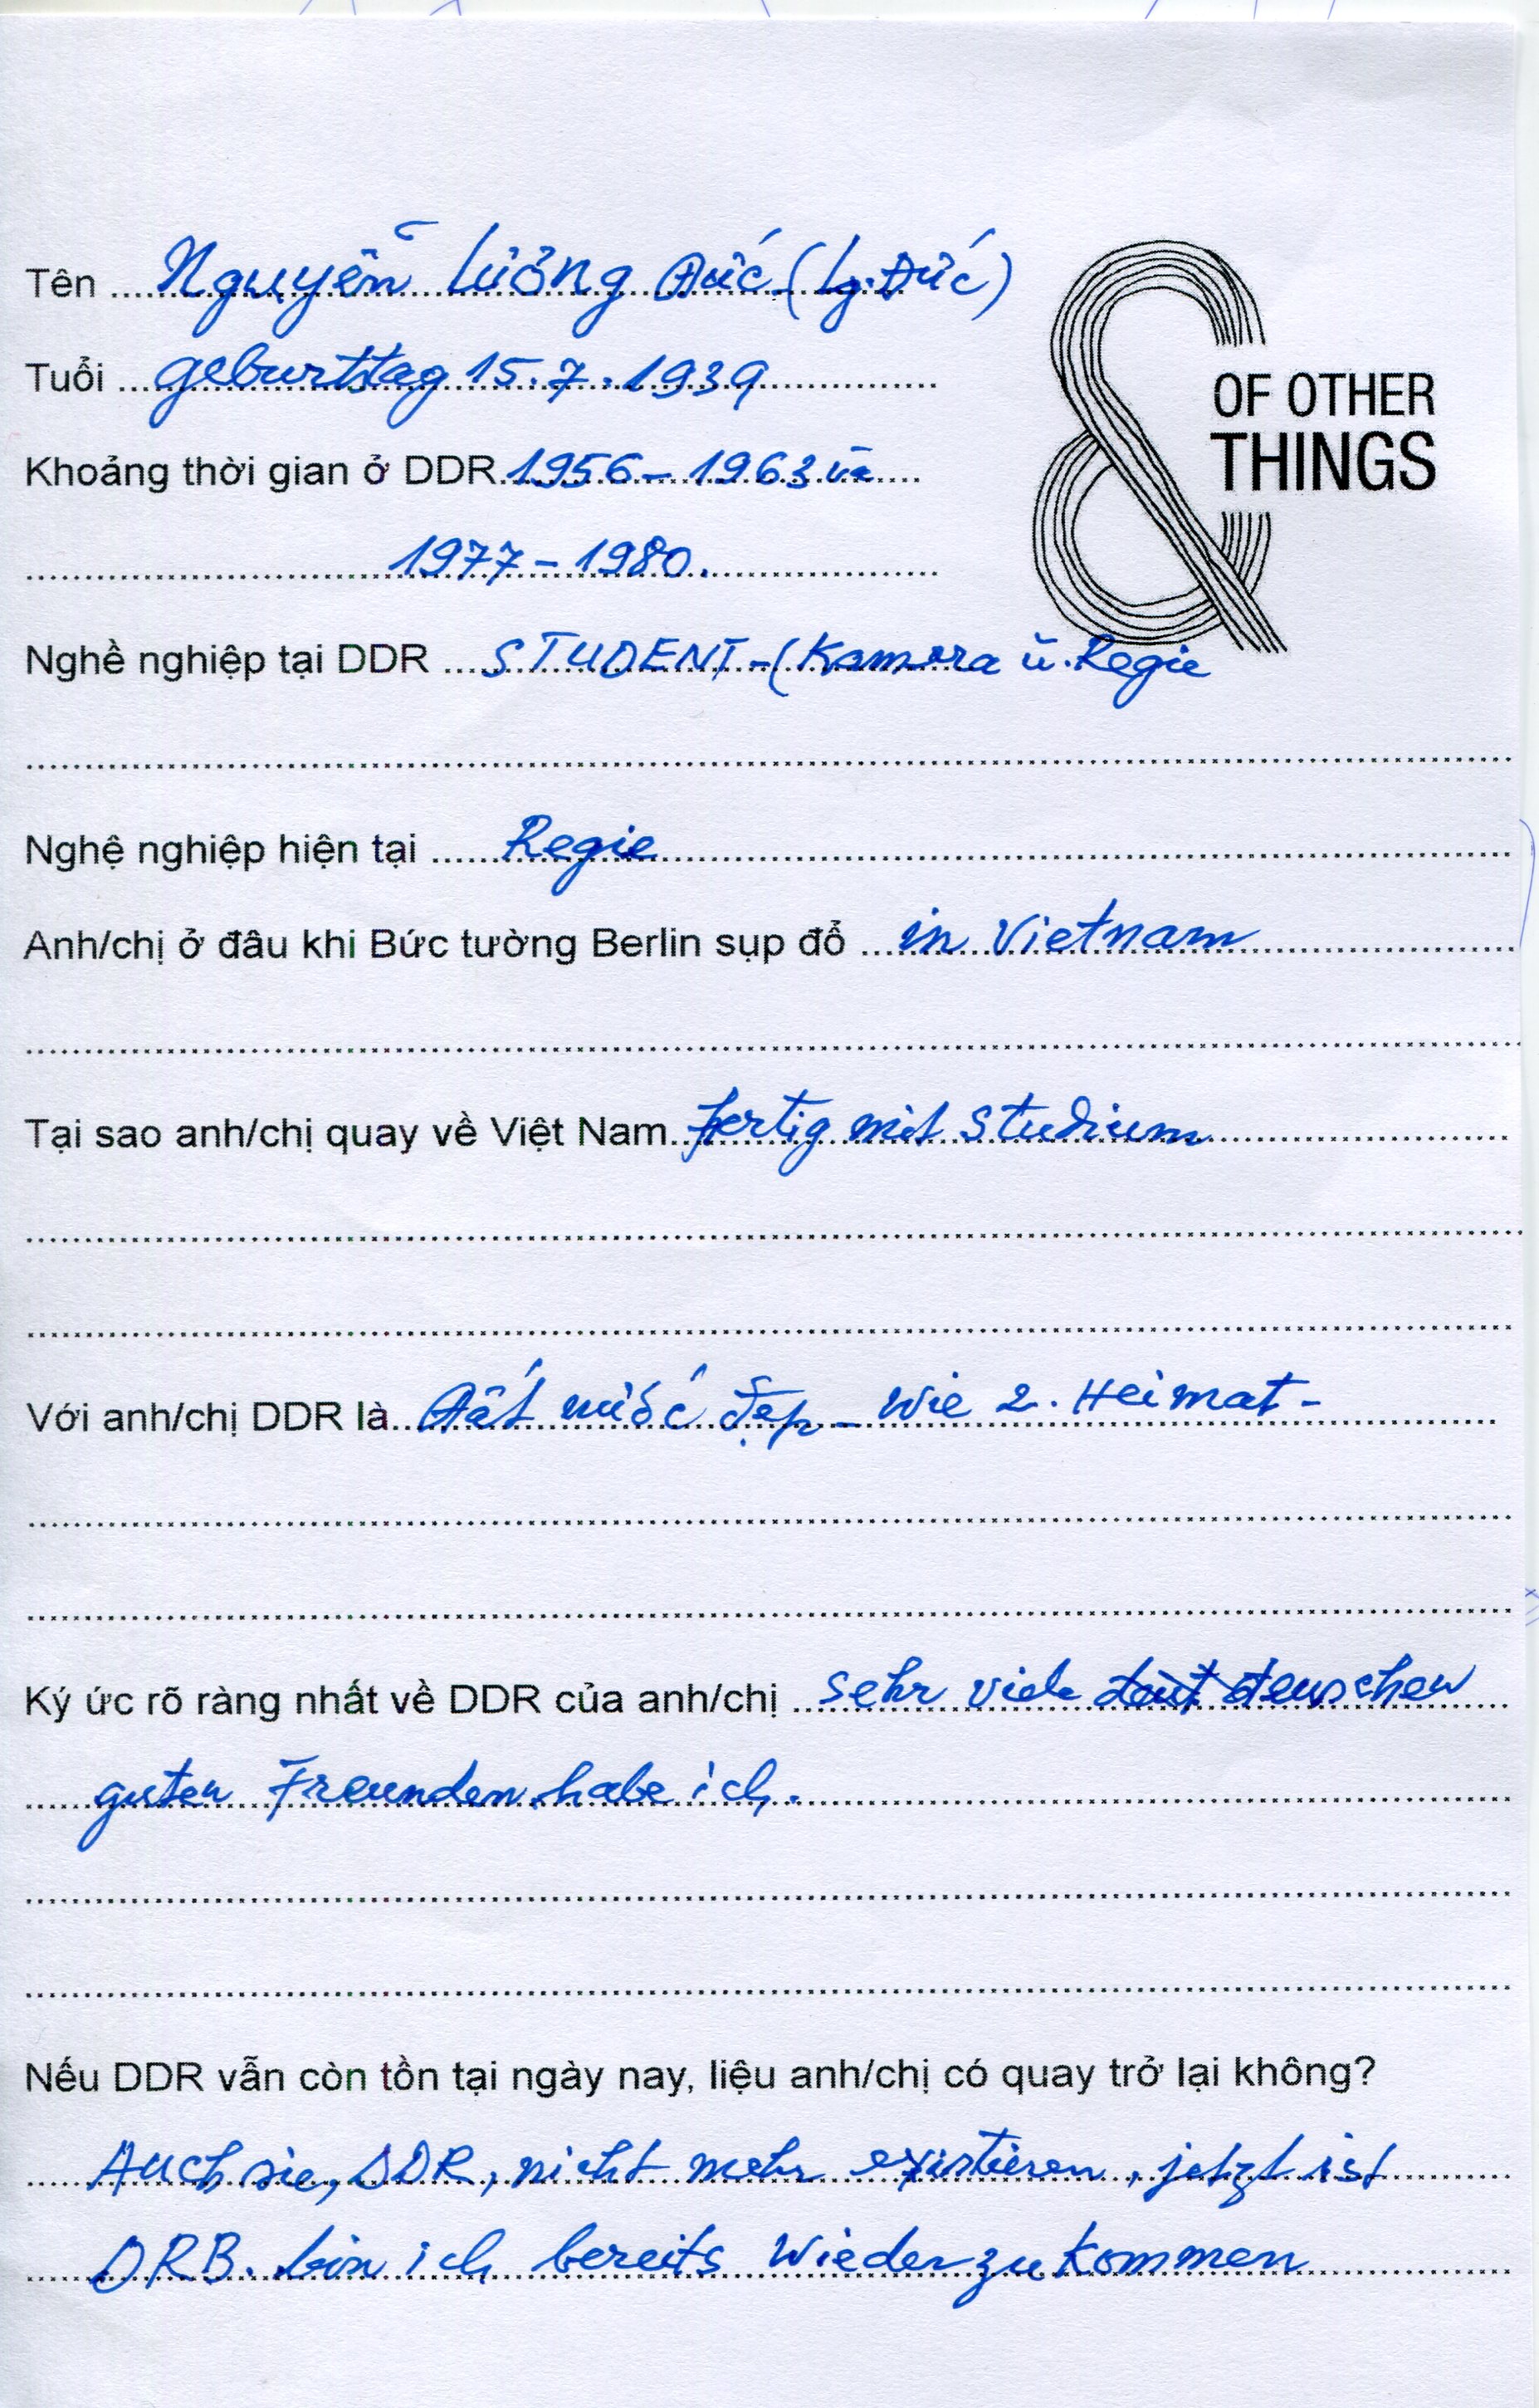 Tên Nguyễn Lương Đức (Lg. Đức)
Tuổi geburttag 15.7.1939
OF OTHER
THINGS
Khoảng thời gian ở DDR 1956 – 1963 và
1977 – 1980.
Nghề nghiệp tại DDR STUDENT – (Kamera ŭ. Regie
Nghệ nghiệp hiện tại Regie
Anh/chị ở đâu khi Bức tường Berlin sụp đổ in Vietnam
Tại sao anh/chị quay về Việt Nam fertig mit Studium
Với anh/chị DDR là Đất nước đẹp – wie 2. Heimat –
Ký ức rõ ràng nhất về DDR của anh/chị sehr viele deuschen
guten Freunden habe ich.
Nếu DDR vẫn còn tồn tại ngày nay, liệu anh/chị có quay trở lại không?
Auch sie, DDR, nicht mehr existieren, jetzt ist
DRB. bin ich bereits wiederzukommen